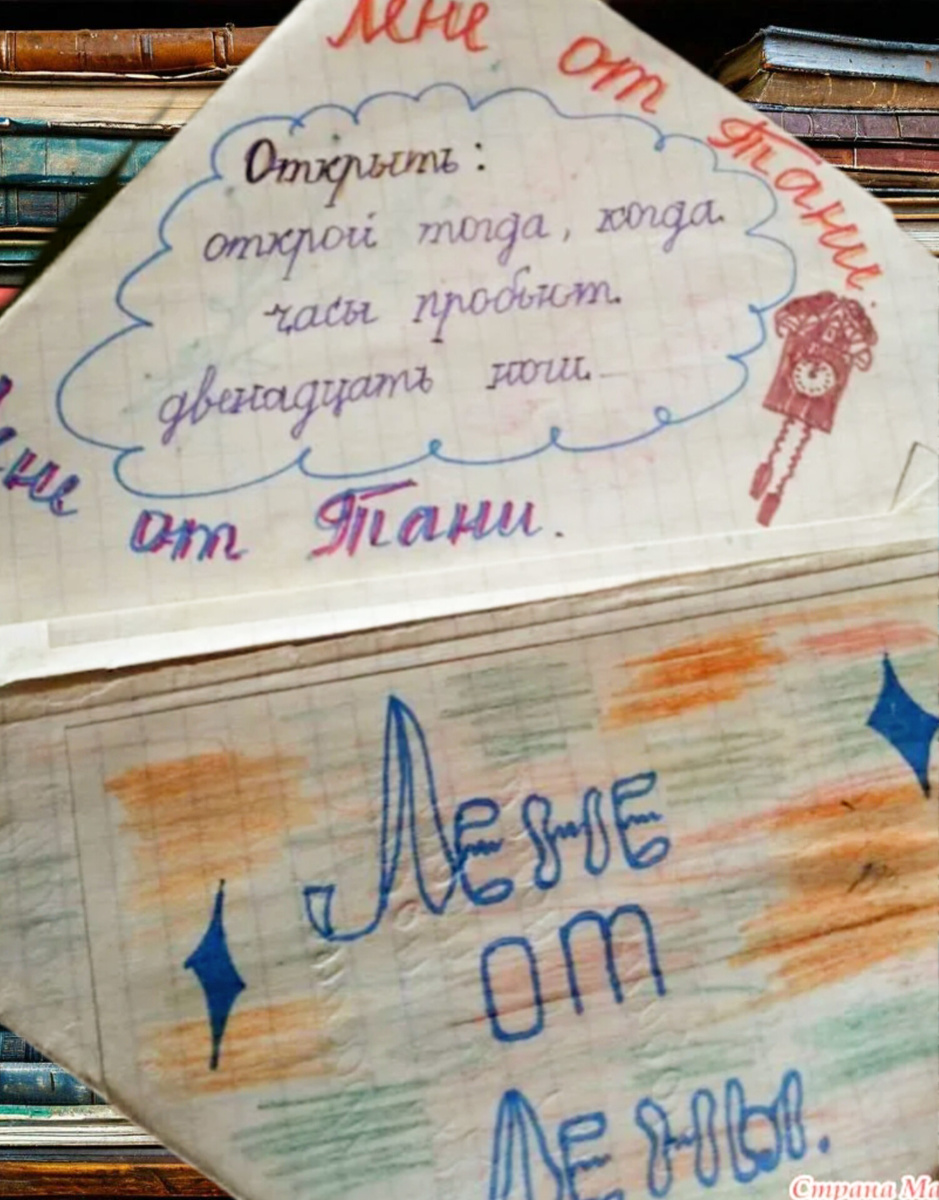 Лене от Тани.
Открыть:
открой тогда, когда
часы пробьют
двенадцать ночи.
от Тани.
Лене
от
Лены.
Страна